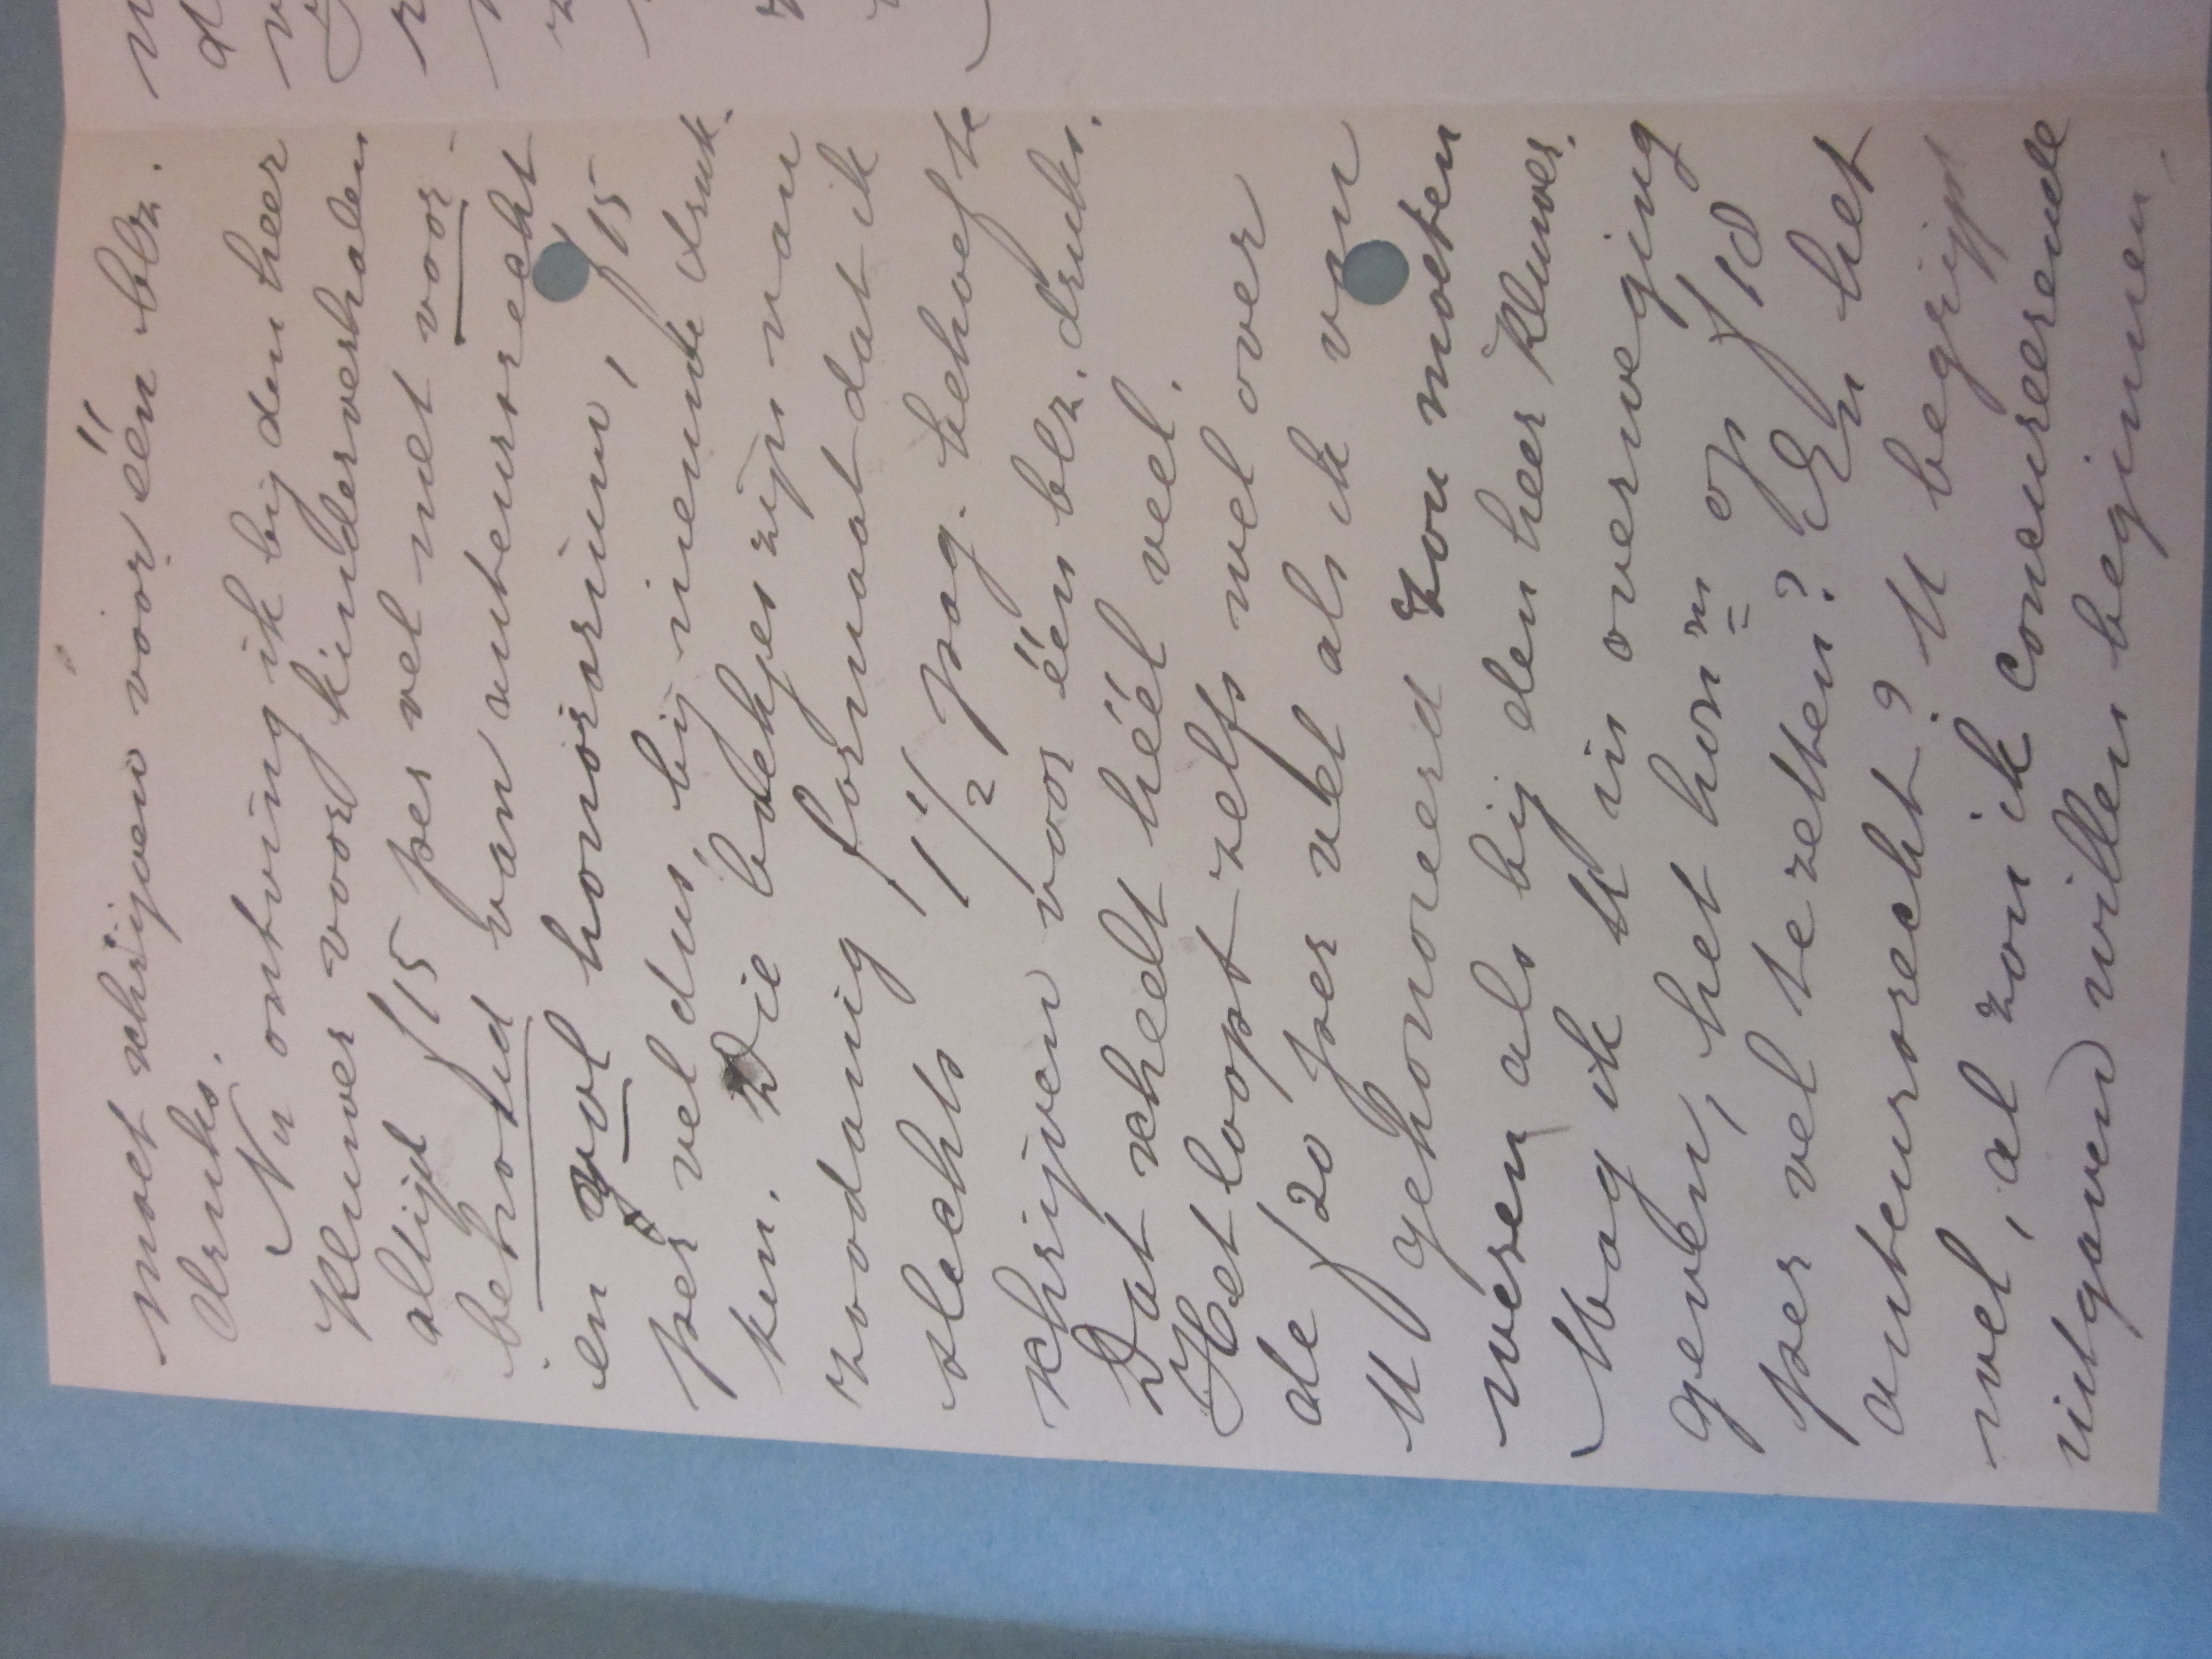 moet schrijven voor één blz.
druks.
Nu ontving ik bij den heer
Kluwer voor kinderverhalen
altijd f15 per vel met voor-
behoud van auteursrecht
en vol honorarium, f15
per vel dus, bij nieuwe druk-
ken. Die boekjes zijn van
zoodanig formaat dat ik
slechts 1 1/2 pag. behoef te
schrijven voor één blz. druks.
Dat scheelt héél veel.
Het loopt zelfs wel over
de f20 per vel als ik van
U gehonoreerd zou moeten
wezen als bij den heer Kluwer.
Mag ik U in overweging
geven, het honm op f18
per vel te zetten? En het
auteursrecht? U begrijpt
wel, al zou ik concureerende
uitgaven willen beginnen,